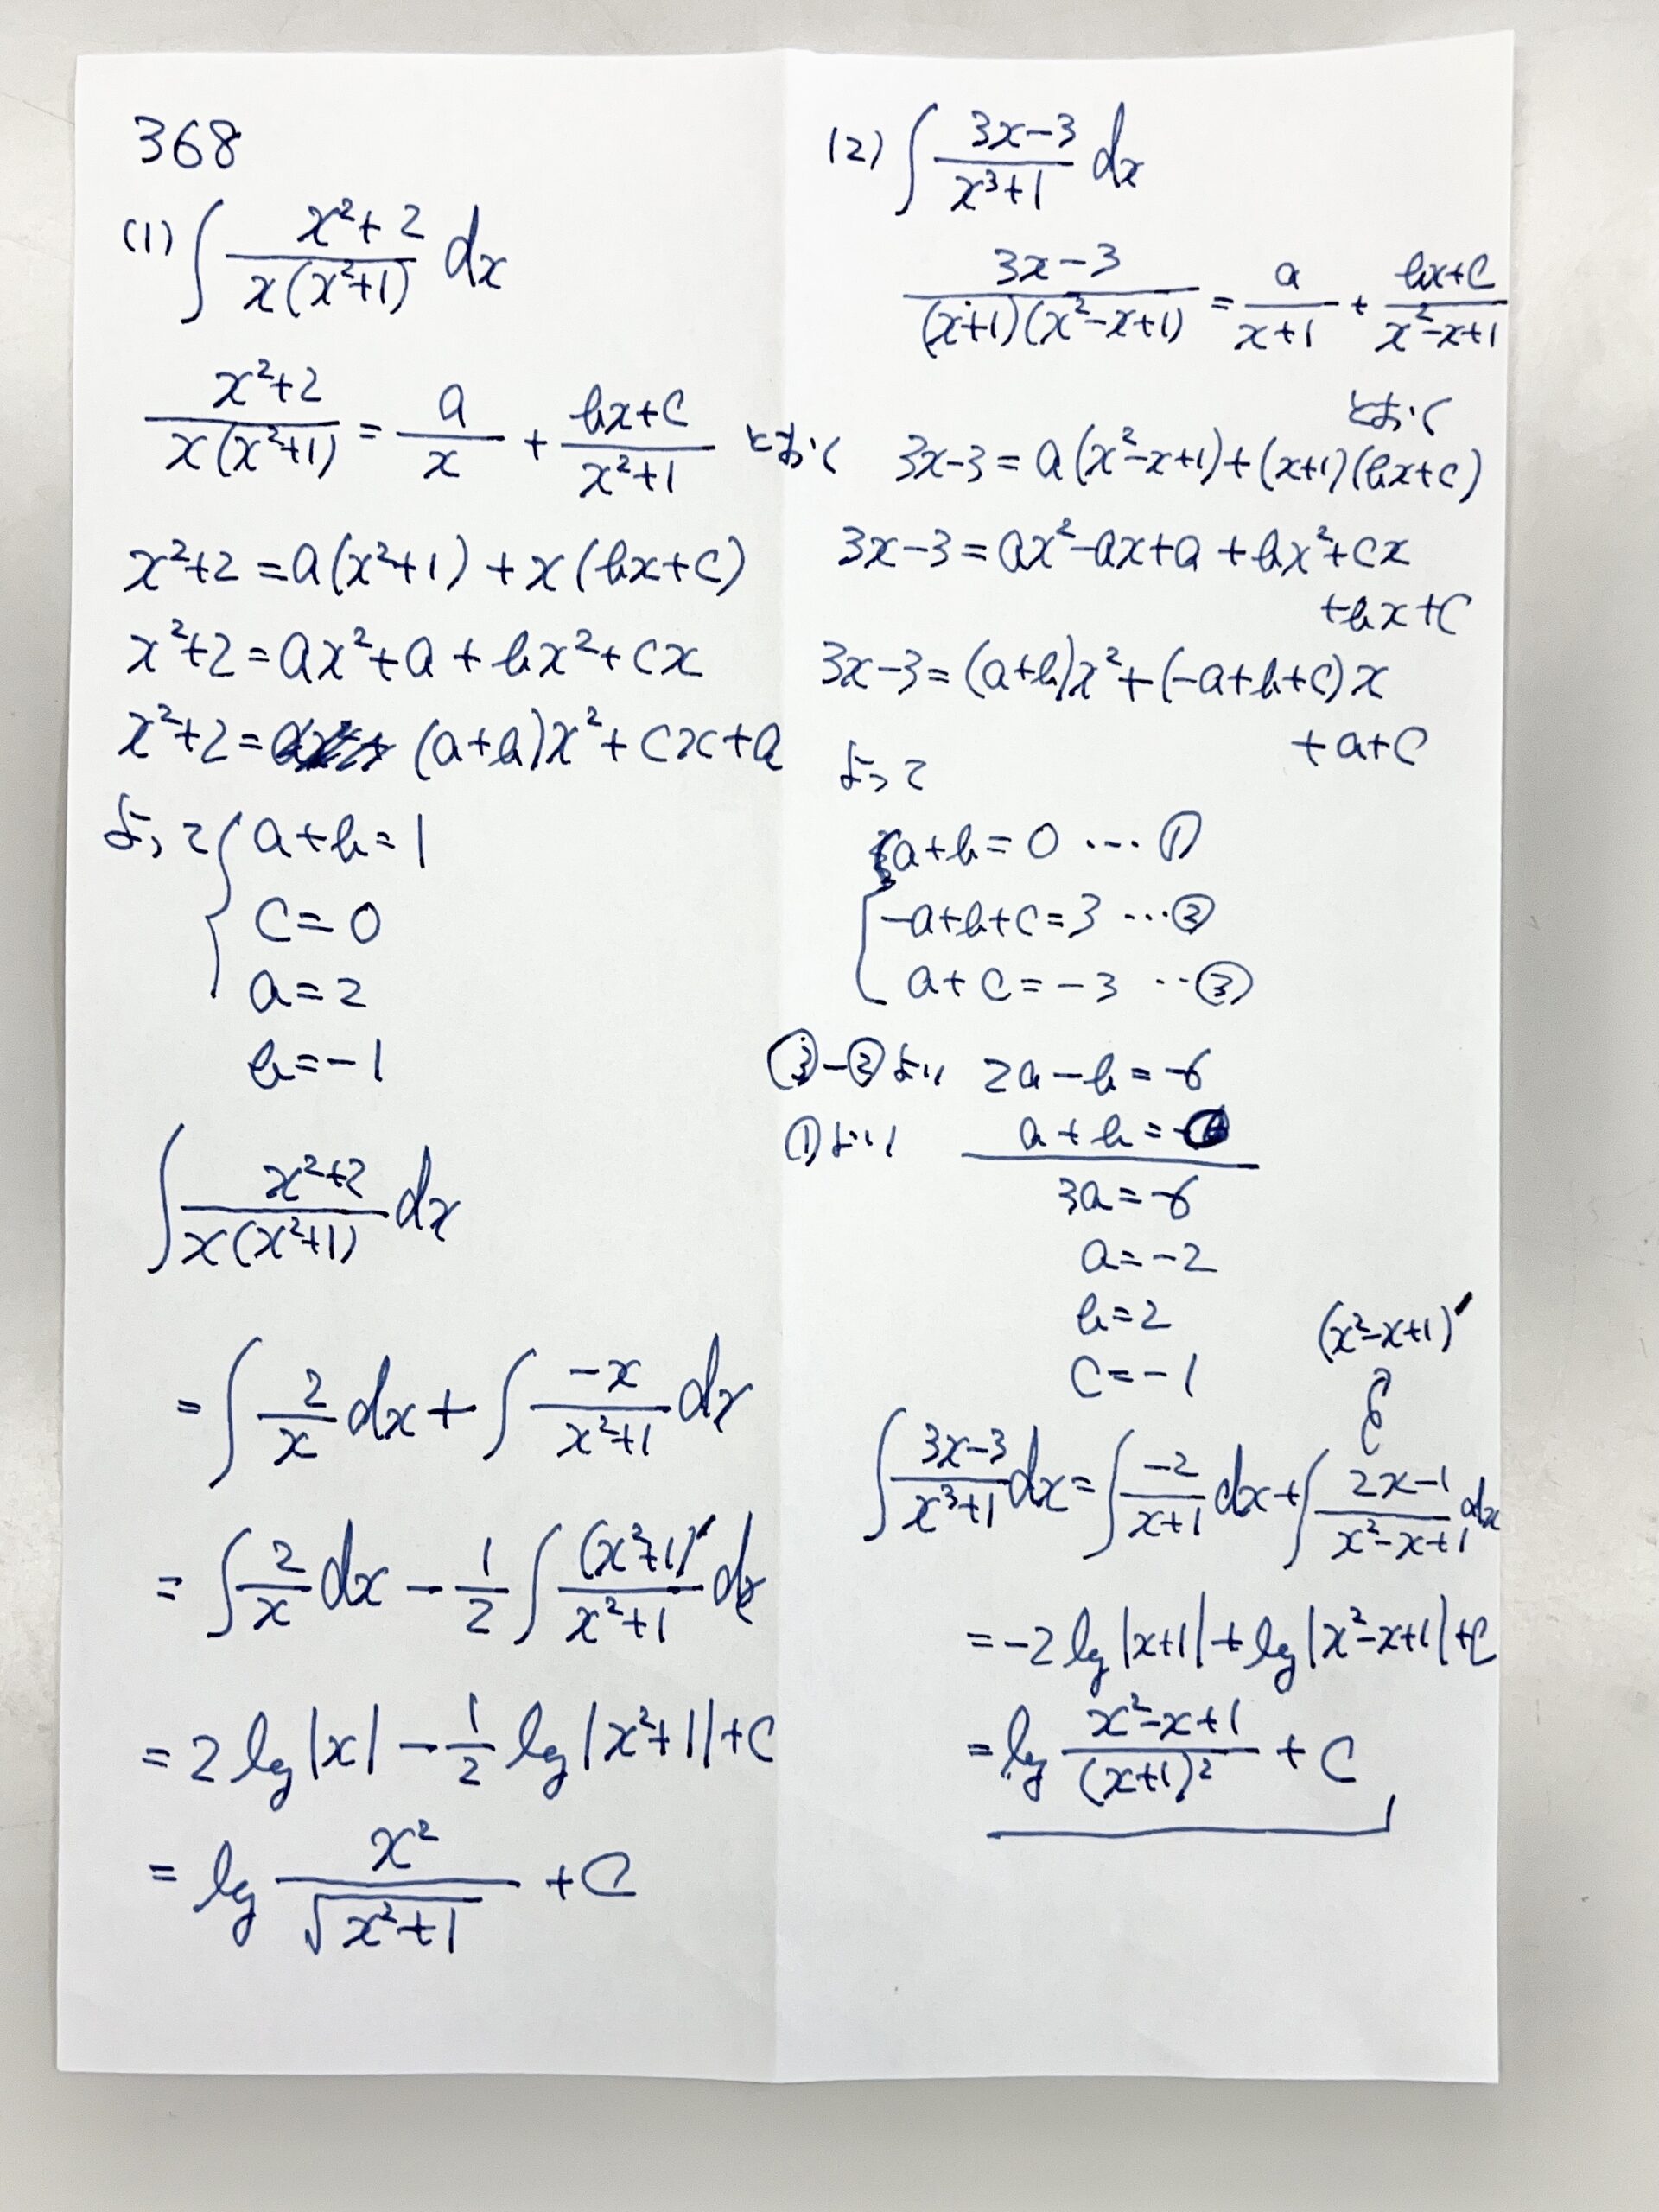 368
(1) ∫ (x²+2)/(x(x²+1)) dx
(x²+2)/(x(x²+1)) = a/x + (bx+c)/(x²+1) とおく
x²+2 = a(x²+1) + x(bx+c)
x²+2 = ax²+a + bx²+cx
x²+2 = (a+b)x²+cx+a
よって { a+b=1
c=0
a=2
b=-1
∫ (x²+2)/(x(x²+1)) dx
= ∫ 2/x dx + ∫ -x/(x²+1) dx
= ∫ 2/x dx - 1/2 ∫ (x²+1)'/(x²+1) dx
= 2 log|x| - 1/2 log|x²+1| + C
= log x²/√(x²+1) + C
(2) ∫ (3x-3)/(x³+1) dx
(3x-3)/((x+1)(x²-x+1)) = a/(x+1) + (bx+c)/(x²-x+1)
とおく
3x-3 = a(x²-x+1)+(x+1)(bx+c)
3x-3 = ax²-ax+a+bx²+cx
+bx+c
3x-3 = (a+b)x²+(-a+b+c)x
+a+c
よって
{ a+b=0 … ①
-a+b+c=3 … ②
a+c=-3 … ③
③-②より 2a-b=-6
①より a+b=0
3a=-6
a=-2
b=2
c=-1
(x²-x+1)'
∫ (3x-3)/(x³+1) dx = ∫ -2/(x+1) dx + ∫ (2x-1)/(x²-x+1) dx
= -2 log|x+1| + log|x²-x+1| + C
= log (x²-x+1)/(x+1)² + C